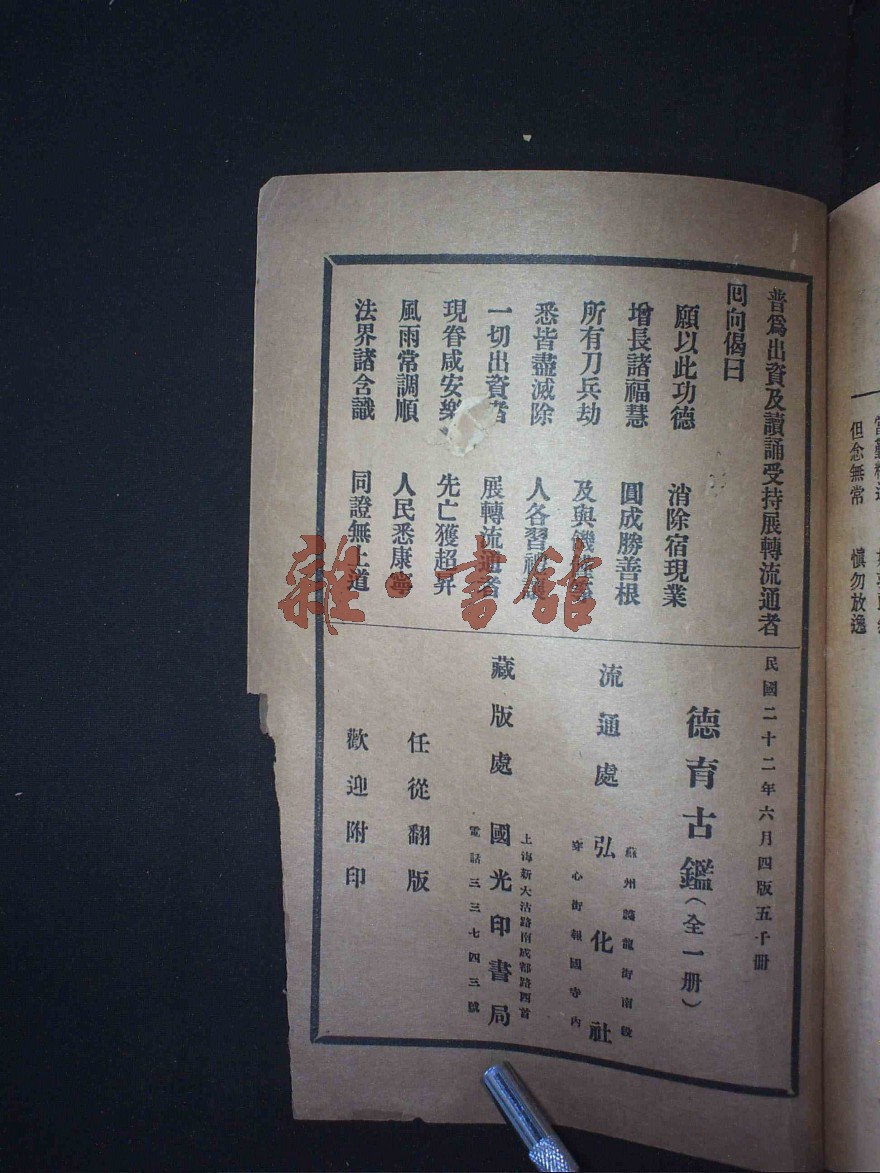 普爲出資及讀誦受持展轉流通者
回向偈曰
願以此功德 消除宿現業
增長諸福慧 圓成勝善根
所有刀兵劫 及與饑饉等
悉皆盡滅除 人各習禮讓
一切出資者 展轉流通者
現眷咸安樂 先亡獲超昇
風雨常調順 人民悉康寧
法界諸含識 同證無上道
民國二十二年六月四版五千册
德育古鑑(全一册)
流通處 弘化社
蘇州護龍街南段
穿心街報國寺內
藏版處 國光印書局
上海新大沽路南成都路西首
電話三三七四三號
任從翻版
歡迎附印
但念無常 慎勿放逸
雜·書館